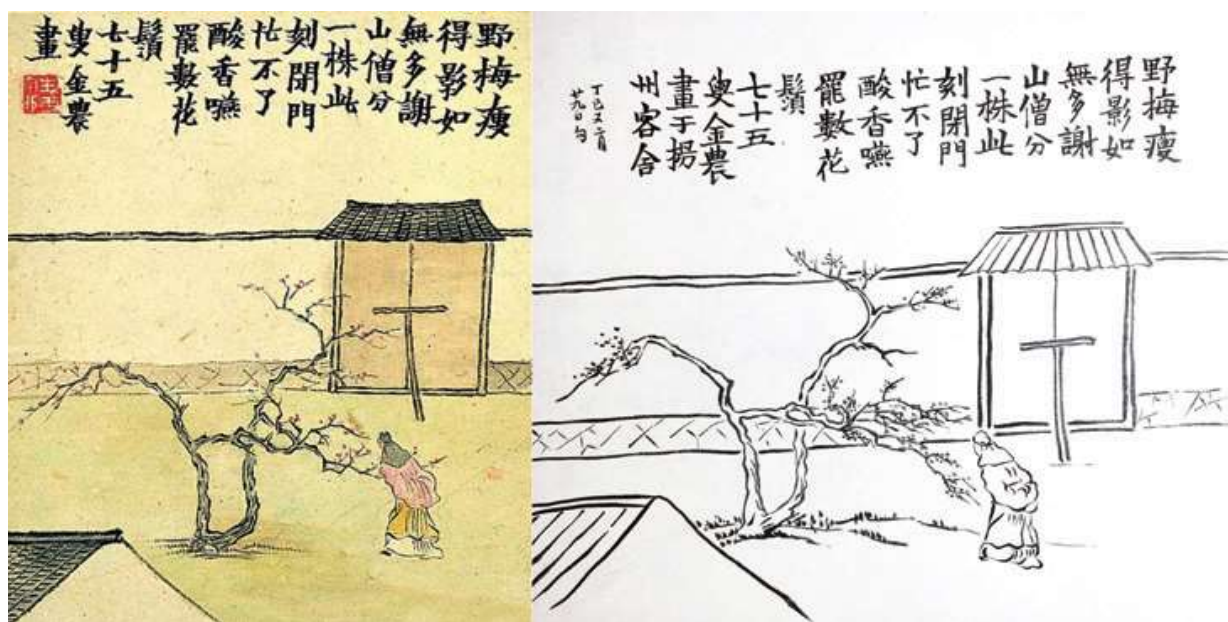 野梅瘦
得影如
無多謝
山僧分
一株此
刻閉門
忙不了
酸香嚥
罷數花
鬚
七十五
叟金農
畫
野梅瘦
得影如
無多謝
山僧分
一株此
刻閉門
忙不了
酸香嚥
罷數花
鬚
七十五
叟金農
畫于揚
州客舍
廿九日